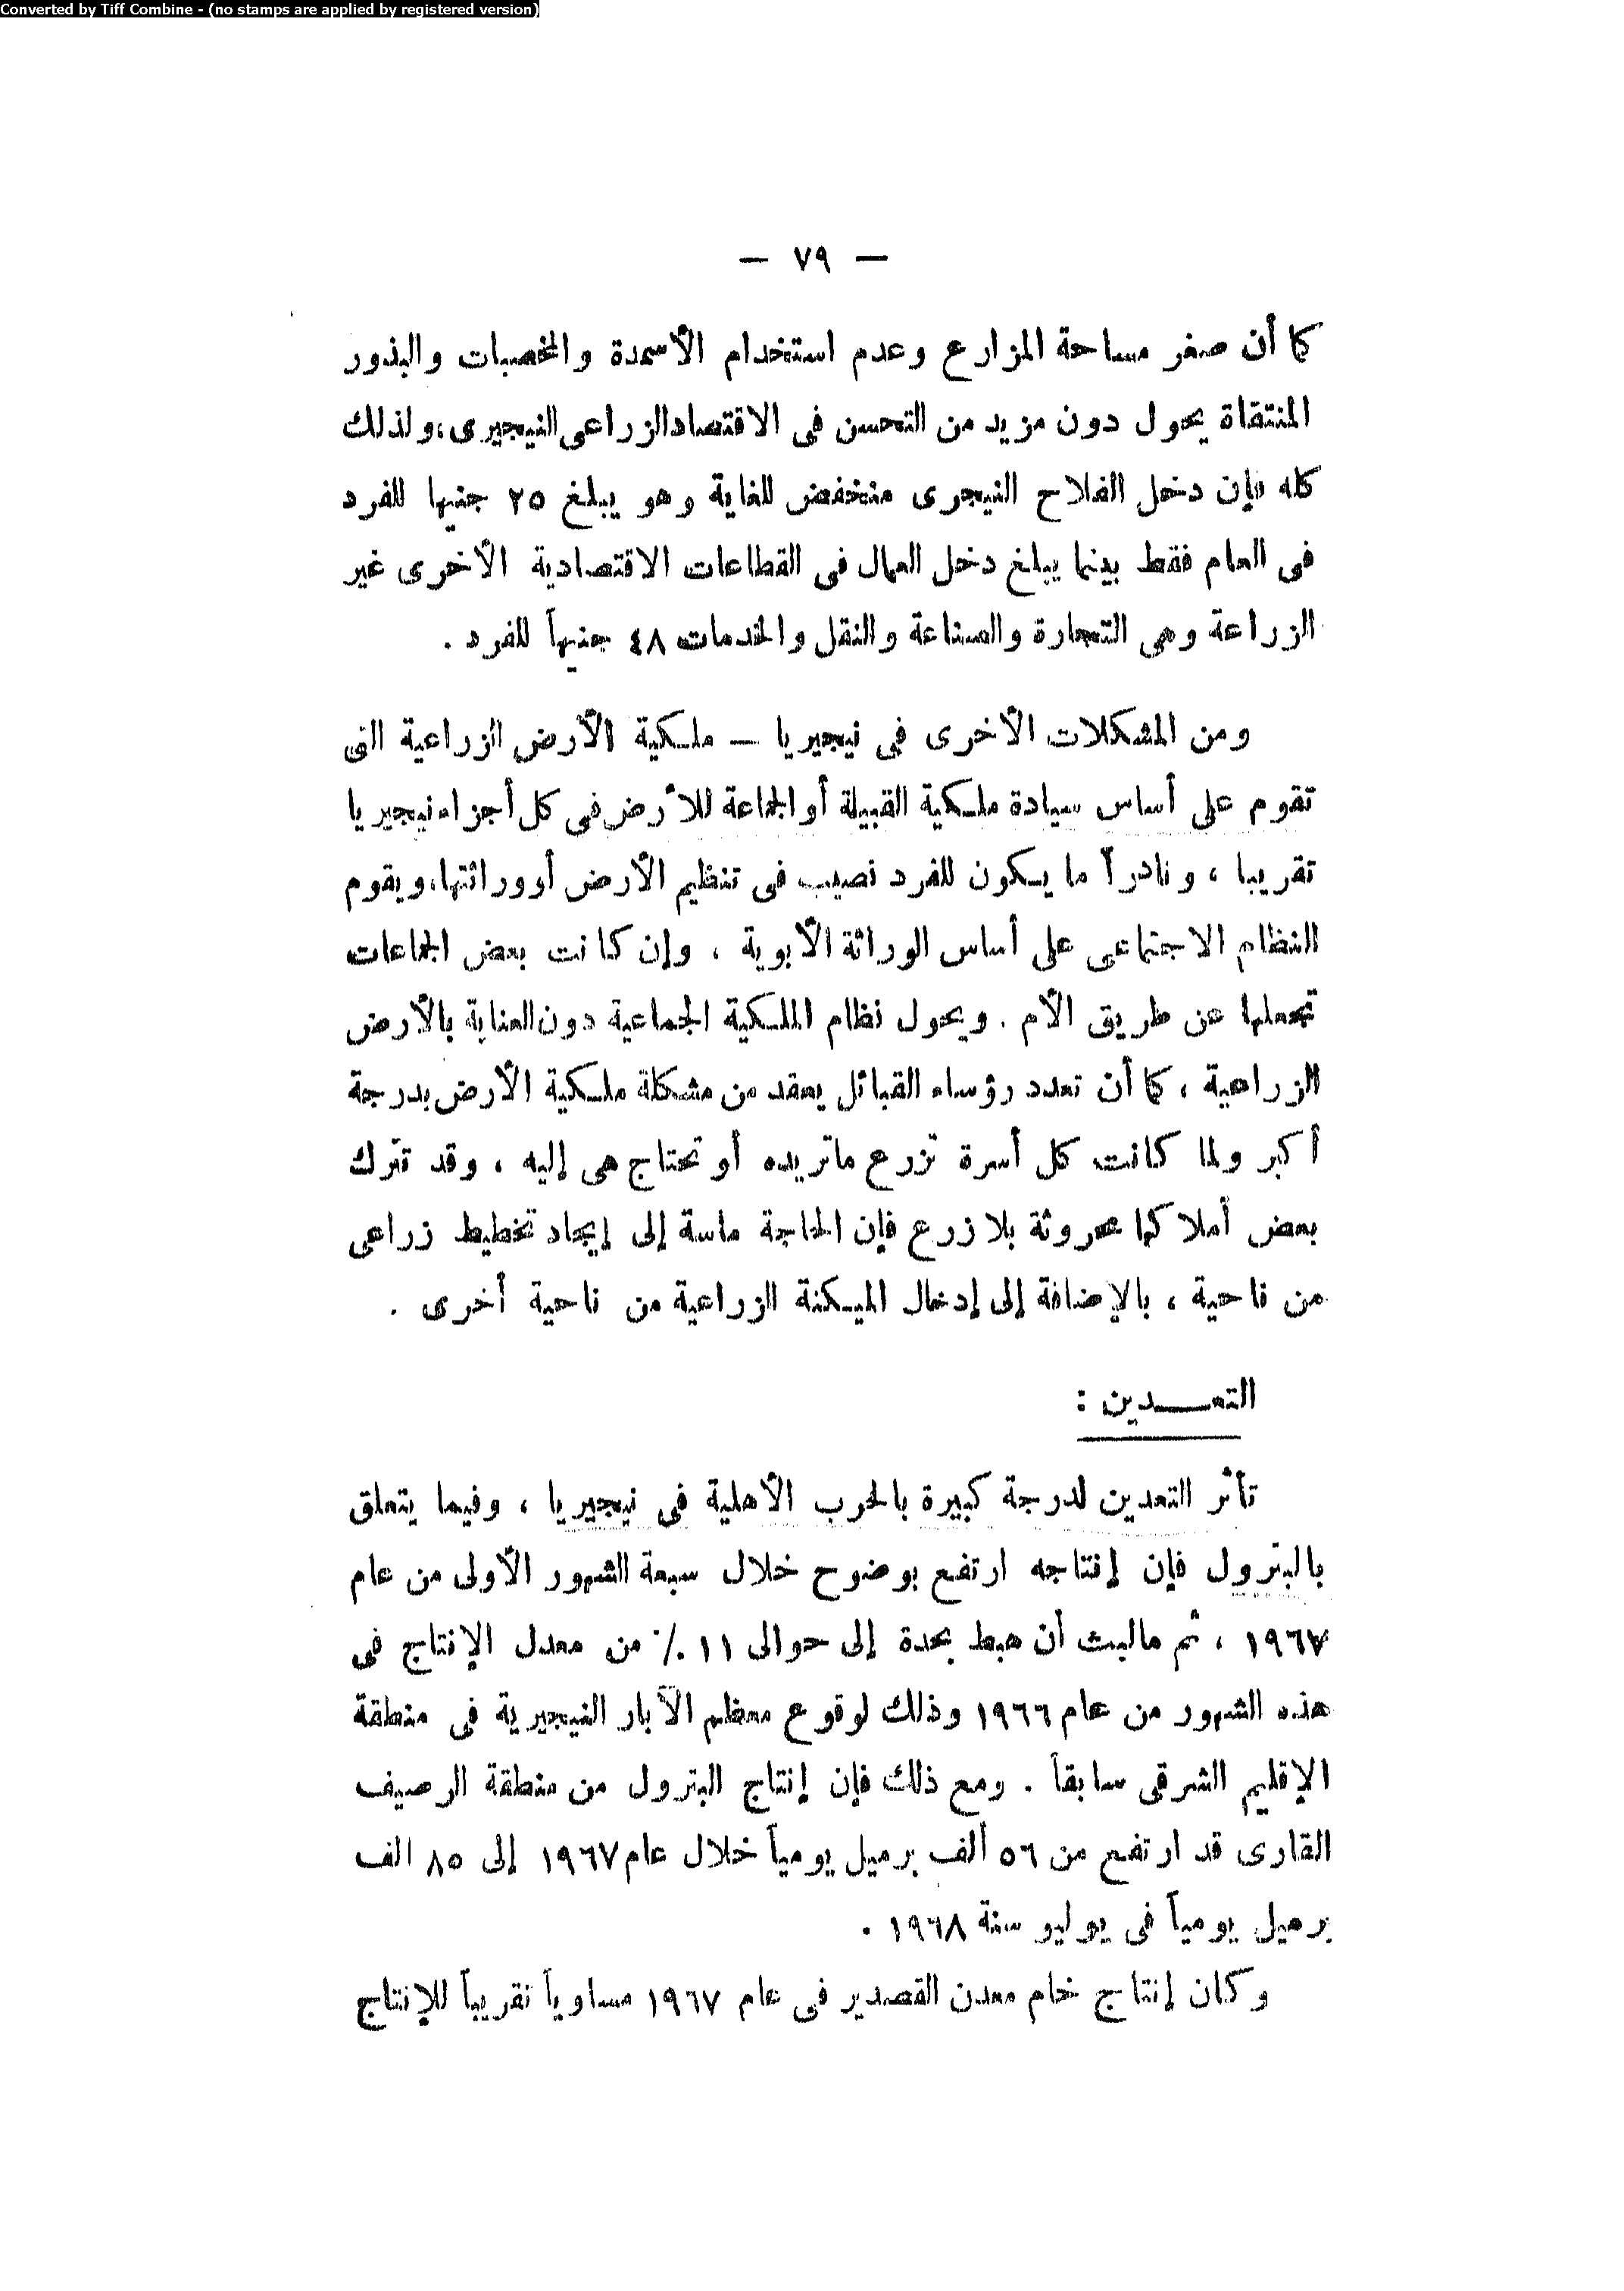 Converted by Tiff Combine - (no stamps are applied by registered version)
— ٧٩ —
كما أن صغر مساحة المزارع وعدم استخدام الأسمدة والمخصبات والبذور
المنتقاة يحول دون مزيد من التحسن فى الاقتصاد الزراعى النيجيرى، ولذلك
كله فإن دخل الفلاح النيجرى منخفض للغاية وهو يبلغ ٢٥ جنيها للفرد
فى العام فقط بينما يبلغ دخل العمال فى القطاعات الاقتصادية الأخرى غير
الزراعة وهى التجارة والصناعة والنقل والخدمات ٤٨ جنيهاً للفرد .
ومن المشكلات الأخرى فى نيجيريا — ملكية الأرض الزراعية التى
تقوم على أساس سيادة ملكية القبيلة أو الجماعة للأرض فى كل أجزاء نيجيريا
تقريبا ، ونادراً ما يكون للفرد نصيب فى تنظيم الأرض أو وراثتها، ويقوم
النظام الاجتماعى على أساس الوراثة الأبوية ، وإن كانت بعض الجماعات
تجعلها عن طريق الأم . ويحول نظام الملكية الجماعية دون العناية بالأرض
الزراعية ، كما أن تعدد رؤساء القبائل يعقد من مشكلة ملكية الأرض بدرجة
أكبر ولما كانت كل أسرة تزرع ماتريده أو تحتاج هى إليه ، وقد تترك
بعض أملاكها محروثة بلا زرع فإن الحاجة ماسة إلى إيجاد تخطيط زراعى
من ناحية ، بالإضافة إلى إدخال الميكنة الزراعية من ناحية أخرى .
التعـــدين :
تأثر التعدين لدرجة كبيرة بالحرب الأهلية فى نيجيريا ، وفيما يتعلق
بالبترول فإن إنتاجه ارتفع بوضوح خلال سبعة الشهور الأولى من عام
١٩٦٧ ، ثم مالبث أن هبط بحدة إلى حوالى ١١ ٪ من معدل الإنتاج فى
هذه الشهور من عام ١٩٦٦ وذلك لوقوع معظم الآبار النيجيرية فى منطقة
الإقليم الشرقى سابقاً . ومع ذلك فإن إنتاج البترول من منطقة الرصيف
القارى قد ارتفع من ٥٦ ألف برميل يومياً خلال عام ١٩٦٧ إلى ٨٥ الف
برميل يومياً فى يوليو سنة ١٩٦٨ .
وكان إنتاج خام معدن القصدير فى عام ١٩٦٧ مساوياً تقريباً للإنتاج